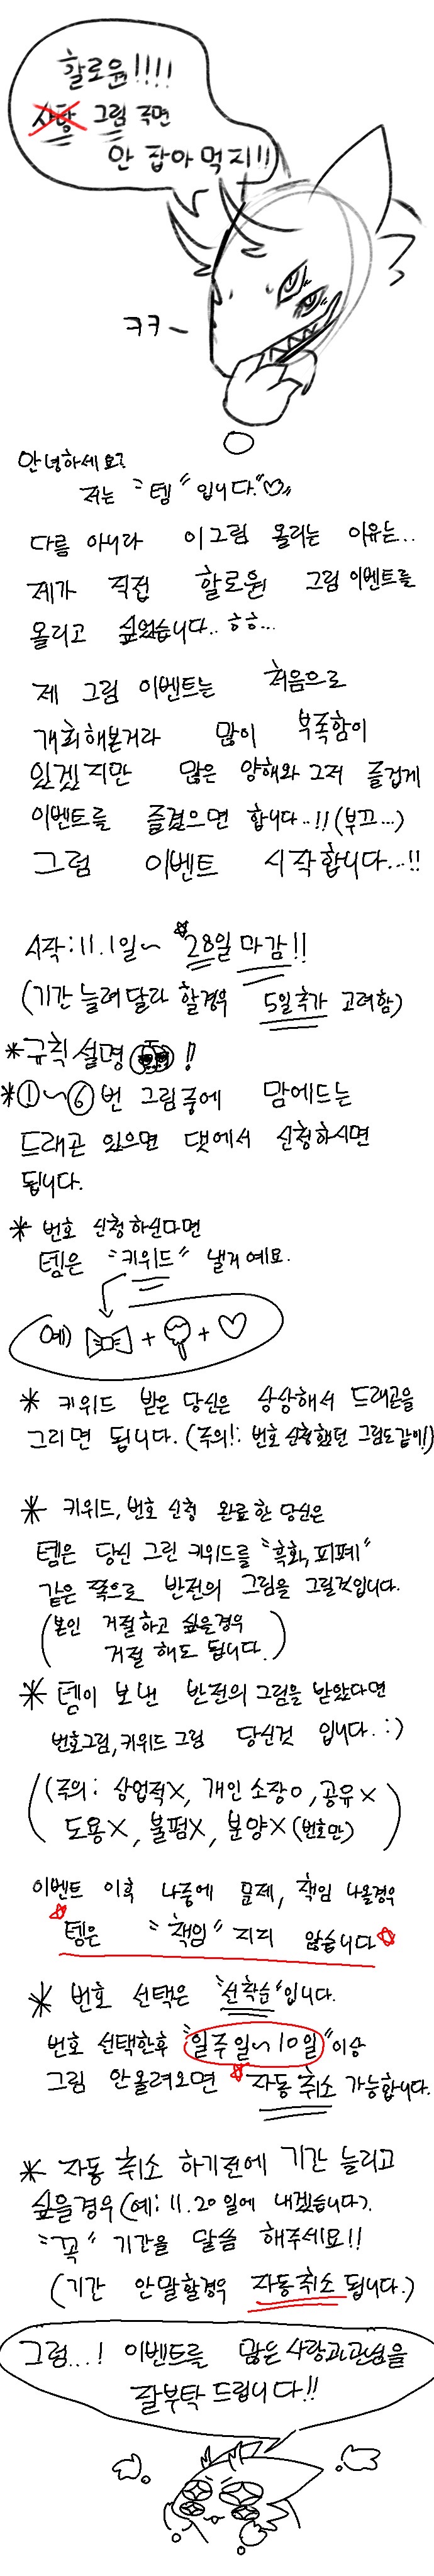 할로윈!!!!
사탕 그림 주면
안 잡아먹지!!
ㅋㅋ~
안녕하세요?
저는 "템" 입니다."♡"
다름 아니라 이그림 올리는 이유는...
제가 직접 할로윈 그림 이벤트를
올리고 싶었습니다.. ㅎㅎ...
제 그림 이벤트는 처음으로
개최해본거라 많이 부족함이
있겠지만 많은 양해와 그저 즐겁게
이벤트를 즐겼으면 합니다..!! (부끄...)
그럼 이벤트 시작합니다...!!
시작:11.1일~ 28일 마감!!
(기간 늘려달라 할경우 5일추가 고려함)
*규칙 설명 !!
*①~⑥번 그림중에 맘에드는
드래곤 있으면 댓에서 신청하시면
됩니다.
* 번호 신청하신다면
템은 "키워드" 낼거예요.
예) + +♡
* 키워드 받은 당신은 상상해서 드래곤을
그리면 됩니다. (주의!: 번호 신청했던 그림도같이!)
* 키워드, 번호 신청 완료한 당신은
템은 당신 그린 키워드를 "흑화, 피폐"
같은 쪽으로 반전의 그림을 그릴것입니다.
(본인 거절하고 싶을경우
거절 해도 됩니다.)
* 템이 보낸 반전의그림을 받았다면
번호그림, 키워드 그림 당신것 입니다. :)
(주의: 상업적X, 개인 소장O, 공유X
도용X, 불펌X, 분양X (번호만))
이벤트 이후 나중에 문제, 책임 나올경우
☆템은 "책임" 지지 않습니다☆
* 번호 선택은 "선착순"입니다.
번호 선택한후 "일주일~10일"이상
그림 안올려오면 ☆자동 취소 가능합니다.
* 자동 취소 하기전에 기간 늘리고
싶을경우 (예: 11.20일에 내겠습니다).
"꼭" 기간을 말씀 해주세요!!
(기간 안말할경우 자동취소 됩니다.)
그럼...! 이벤트를 많은사랑과관심을
잘부탁 드립니다!!